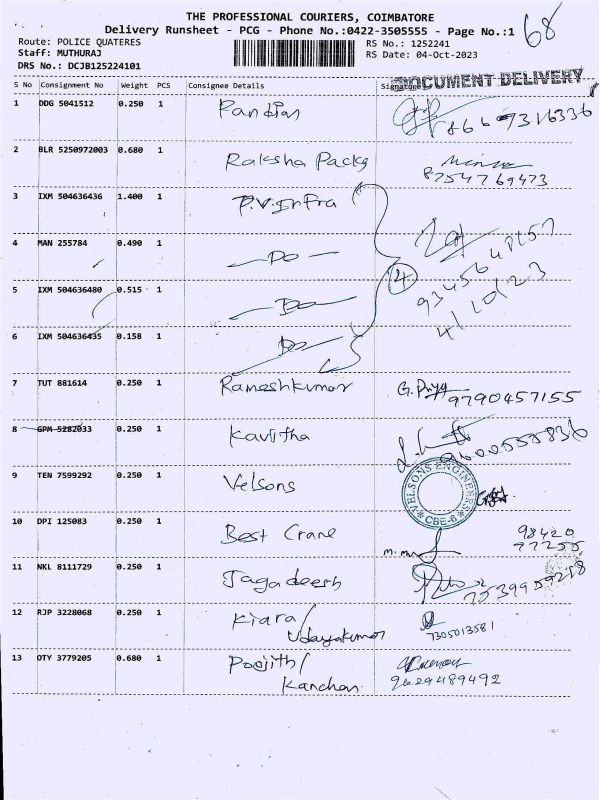 THE PROFESSIONAL COURIERS, COIMBATORE
68
Delivery Runsheet - PCG - Phone No.:0422-3505555 - Page No.:1
Route: POLICE QUATERES
RS No.: 1252241
Staff: MUTHURAJ
RS Date: 04-Oct-2023
DRS No.: DCJB125224101
DOCUMENT DELIVERY
S No Consignment No Weight PCS Consignee Details Signature
1 DDG 5041512 0.250 1 Pandian
2 BLR 5250972003 0.680 1 Raksha Packs
8754769473
3 IXM 504636436 1.400 1 P.V.
4 MAN 255784 0.490 1 — Do —
4
4/10/23
5 IXM 504636480 0.515 1 — Do —
6 IXM 504636435 0.158 1 Do
7 TUT 881614 0.250 1 Rameshkumar G. Priya
9790457155
8 GPM 5282033 0.250 1 Kavitha
9 TEN 7599292 0.250 1 Velsons
VELSONS ENGINEERS
CBE-6
10 DPI 125083 0.250 1 Best Crane
98420
77255
11 NKL 8111729 0.250 1 Jagadeesh
12 RJP 3228068 0.250 1 Kiara/
Udayakumar
7305013581
13 OTY 3779205 0.680 1 Poojith/
Kanchan
9629489492